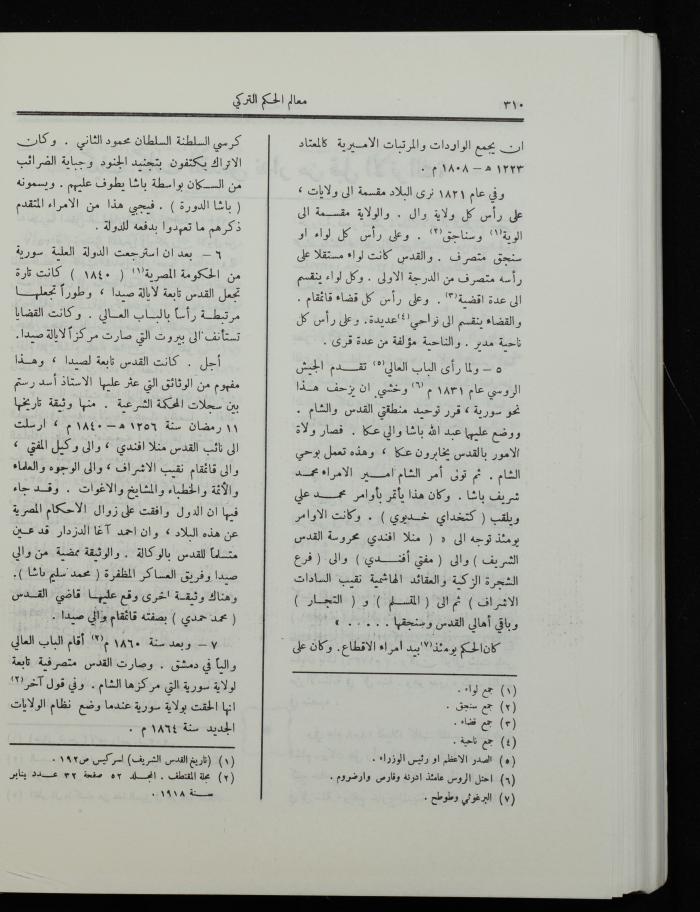 ٣١٠
معالم الحكم التركي
ان يجمع الواردات والمرتبات الاميرية كالمعتاد
١٢٢٣ هـ – ١٨٠٨ م .
وفي عام ١٨٢١ نرى البلاد مقسمة الى ولايات ،
على رأس كل ولاية وال . والولاية مقسمة الى
الوية(١) وسناجق(٢) . وعلى رأس كل لواء او
سنجق متصرف . والقدس كانت لواء مستقلا على
رأسه متصرف من الدرجة الاولى . وكل لواء ينقسم
الى عدة اقضية(٣) . وعلى رأس كل قضاء قائمقام .
والقضاء ينقسم الى نواحي(٤) عديدة . وعلى رأس كل
ناحية مدير . والناحية مؤلفة من عدة قرى .
٥ – ولما رأى الباب العالي(٥) تقدم الجيش
الروسي عام ١٨٣١ م(٦) وخشي ان يزحف هذا
نحو سورية ، قرر توحيد منطقتي القدس والشام .
ووضع عليها عبد الله باشا والي عكا . فصار ولاة
الامور بالقدس يخابرون عكا ، وهذه تعمل بوحي
الشام . ثم تولى أمر الشام امير الامراء محمد
شريف باشا . وكان هذا يأتمر بأوامر محمد علي
ويلقب ( كتخداي خديوي ) . وكانت الاوامر
يومئذ توجه الى « ( منلا افندي محروسة القدس
الشريف ) والى ( مفتي أفندي ) والى ( فرع
الشجرة الزكية والعقائد الهاشمية نقيب السادات
الاشراف ) ثم الى ( المتسلم ) و ( التجار )
وباقي أهالي القدس وسنجقها . . . . . »
كان الحكم يومئذ(٧) بيد أمراء الاقطاع . وكان على
(١) جمع لواء .
(٢) جمع سنجق .
(٣) جمع قضاء .
(٤) جمع ناحية .
(٥) الصدر الاعظم او رئيس الوزراء .
(٦) احتل الروس عامئذ ادرنه وقارص وارضروم .
(٧) البرغوثي وطوطح .
كرسي السلطنة السلطان محمود الثاني . وكان
الاتراك يكتفون بتجنيد الجنود وجباية الضرائب
من السكان بواسطة باشا يطوف عليهم . ويسمونه
( باشا الدورة ) . فيجبي هذا من الامراء المتقدم
ذكرهم ما تعهدوا بدفعه للدولة .
٦ – بعد ان استرجعت الدولة العلية سورية
من الحكومة المصرية(١) ( ١٨٤٠ ) كانت تارة
تجعل القدس تابعة لايالة صيدا ، وطوراً تجعلها
مرتبطة رأساً بالباب العالي . وكانت القضايا
تستأنف الى بيروت التي صارت مركزاً لايالة صيدا .
أجل . كانت القدس تابعة لصيدا ، وهذا
مفهوم من الوثائق التي عثر عليها الاستاذ أسد رستم
بين سجلات المحكمة الشرعية . منها وثيقة تاريخها
١١ رمضان سنة ١٢٥٦ هـ – ١٨٤٠ م ، ارسلت
الى نائب القدس منلا افندي ، والى وكيل المفتي ،
والى قائمقام نقيب الاشراف ، والى الوجوه والعلماء
والأئمة والخطباء والمشايخ والاغوات . وقد جاء
فيها ان الدول وافقت على زوال الاحكام المصرية
عن هذه البلاد ، وان احمد آغا الدزدار قد عين
متسلماً للقدس بالوكالة . والوثيقة ممضية من والي
صيدا وفريق العساكر المظفرة ( محمد سليم باشا ) .
وهناك وثيقة اخرى وقع عليها قاضي القدس
( محمد حمدي ) بصفته قائمقام والي صيدا .
٧ – وبعد سنة ١٨٦٠ م(٢) أقام الباب العالي
والياً في دمشق . وصارت القدس متصرفية تابعة
لولاية سورية التي مركزها الشام . وفي قول آخر(٢)
انها الحقت بولاية سورية عندما وضع نظام الولايات
الجديد سنة ١٨٦٤ م .
(١) (تاريخ القدس الشريف) لسركيس ص١٩٢ .
(٢) مجلة المقتطف . المجلد ٥٢ صفحة ٣٢ عدد يناير
سنة ١٩١٨ .